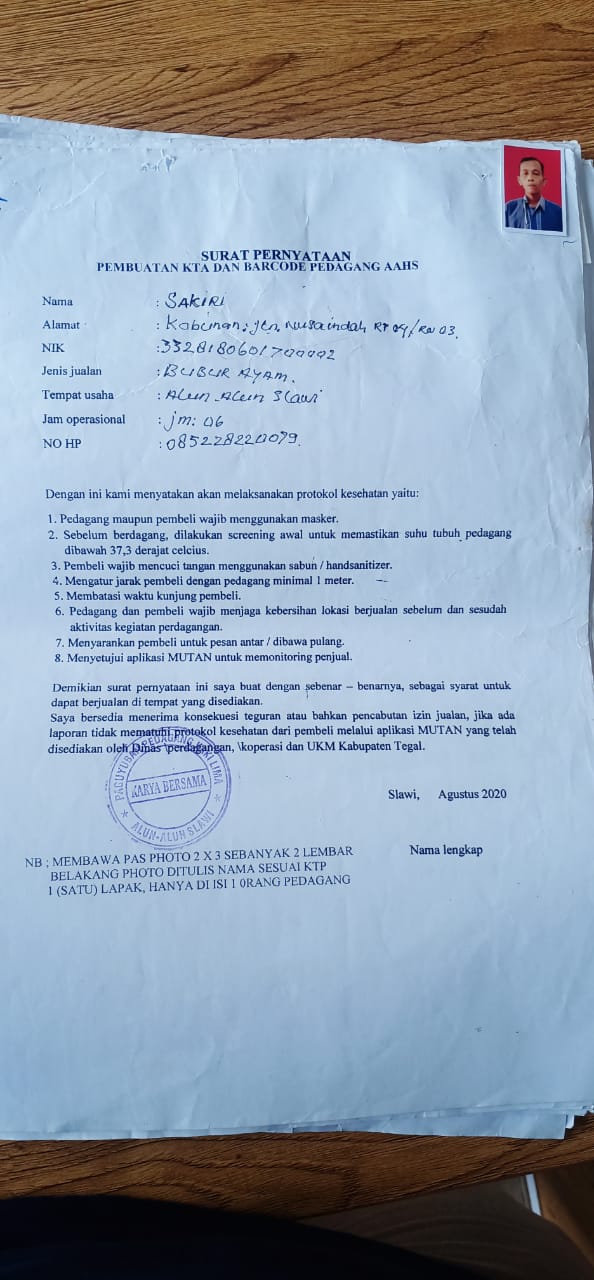 SURAT PERNYATAAN
PEMBUATAN KTA DAN BARCODE PEDAGANG AAHS
Nama : SAKIRI
Alamat : Kabunan; jln. Nusaindah RT 04/RW 03.
NIK :
Jenis jualan : BUBUR AYAM.
Tempat usaha : Alun-Alun Slawi
Jam operasional : jm: 06
NO HP : 085228220079.
Dengan ini kami menyatakan akan melaksanakan protokol kesehatan yaitu:
1. Pedagang maupun pembeli wajib menggunakan masker.
2. Sebelum berdagang, dilakukan screening awal untuk memastikan suhu tubuh pedagang
dibawah 37,3 derajat celcius.
3. Pembeli wajib mencuci tangan menggunakan sabun / handsanitizer.
4. Mengatur jarak pembeli dengan pedagang minimal 1 meter.
5. Membatasi waktu kunjung pembeli.
6. Pedagang dan pembeli wajib menjaga kebersihan lokasi berjualan sebelum dan sesudah
aktivitas kegiatan perdagangan.
7. Menyarankan pembeli untuk pesan antar / dibawa pulang.
8. Menyetujui aplikasi MUTAN untuk memonitoring penjual.
Demikian surat pernyataan ini saya buat dengan sebenar – benarnya, sebagai syarat untuk
dapat berjualan di tempat yang disediakan.
Saya bersedia menerima konsekuesi teguran atau bahkan pencabutan izin jualan, jika ada
laporan tidak mematuhi protokol kesehatan dari pembeli melalui aplikasi MUTAN yang telah
disediakan oleh Dinas \perdagangan, \koperasi dan UKM Kabupaten Tegal.
PAGUYUBAN PEDAGANG KAKI LIMA
KARYA BERSAMA
ALUN-ALUN SLAWI
Slawi, Agustus 2020
Nama lengkap
NB ; MEMBAWA PAS PHOTO 2 X 3 SEBANYAK 2 LEMBAR
BELAKANG PHOTO DITULIS NAMA SESUAI KTP
1 (SATU) LAPAK, HANYA DI ISI 1 0RANG PEDAGANG